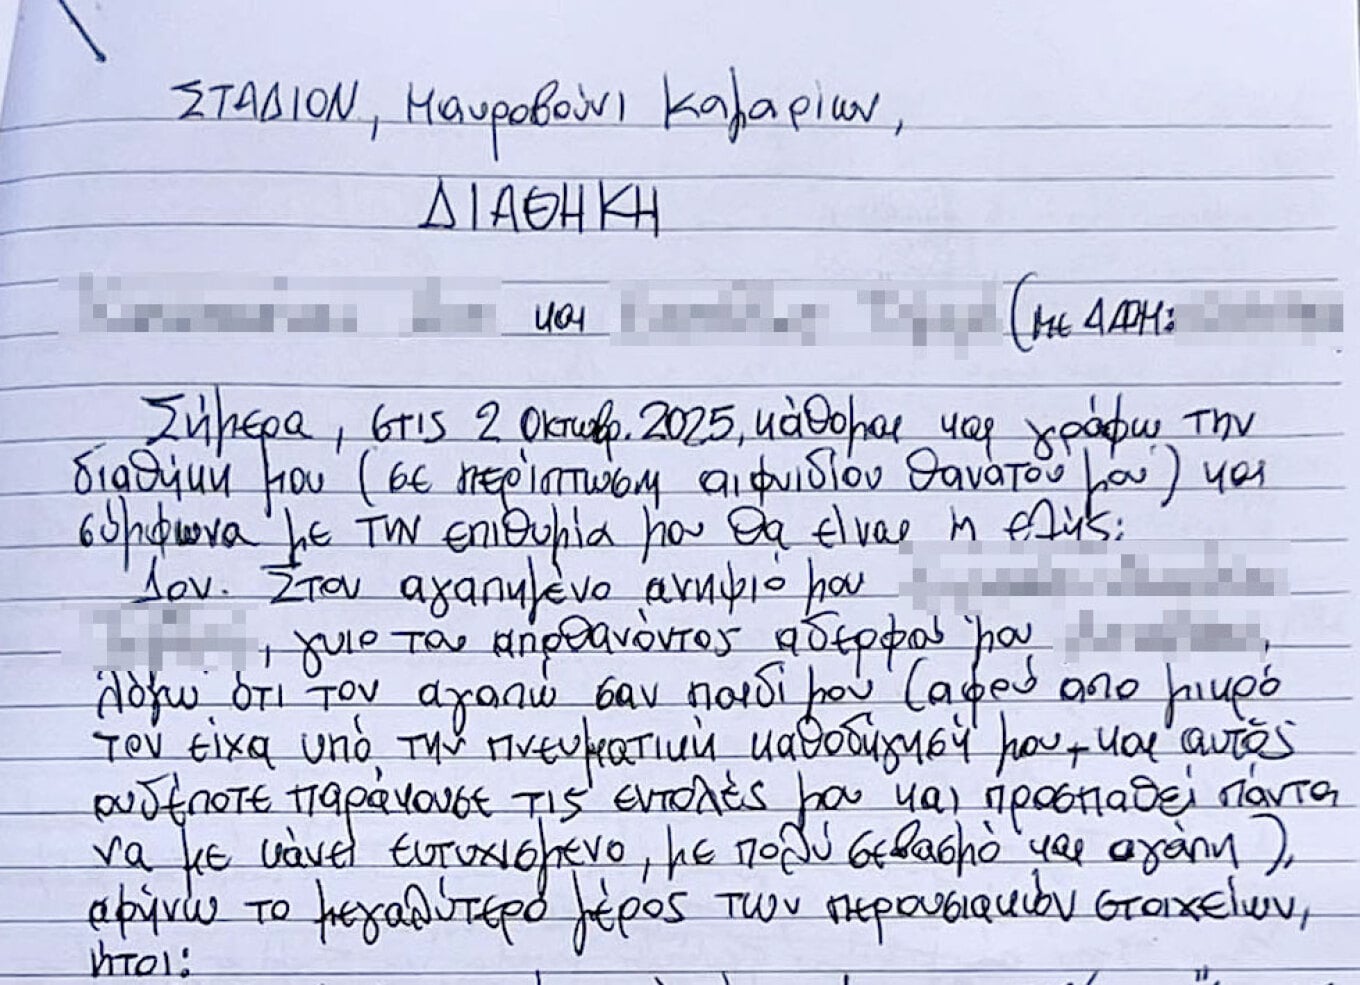 ΣΤΑΔΙΟΝ, Μαυροβούνι Καμαρίων,
ΔΙΑΘΗΚΗ
και (με ΑΦΜ:
Σήμερα, στις 2 Οκτωβρ. 2025, κάθομαι και γράφω την
διαθήκη μου (σε περίπτωση αιφνιδίου θανάτου μου) και
σύμφωνα με την επιθυμία μου θα είναι η εξής:
1ον. Στον αγαπημένο ανηψιό μου
, γυιο του αποθανόντος αδερφού μου ,
λόγω ότι τον αγαπώ σαν παιδί μου (αφού απο μικρό
τον είχα υπό την πνευματική καθοδήγησή μου, και αυτός
ουδέποτε παράκουσε τις εντολές μου και προσπαθεί πάντα
να με κάνει ευτυχισμένο, με πολύ σεβασμό και αγάπη),
αφήνω το μεγαλύτερο μέρος των περουσιακών στοιχείων,
ητοι: